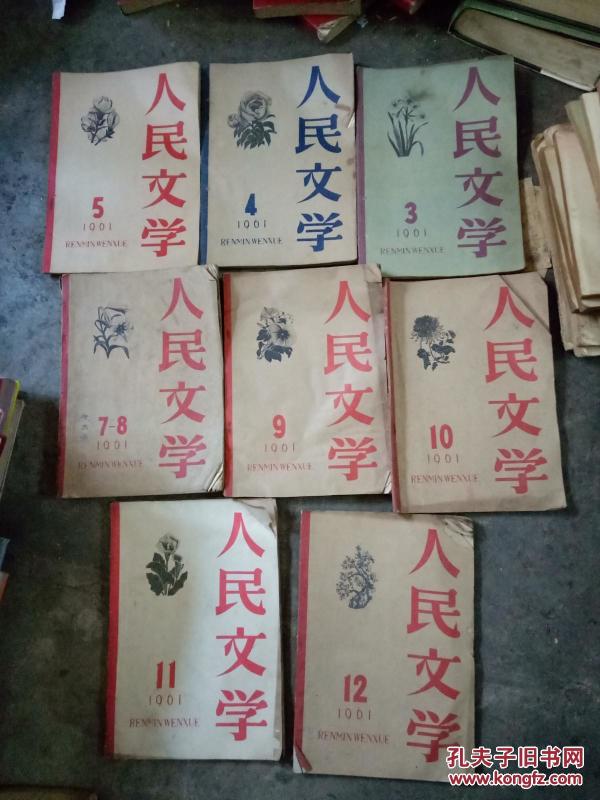 人民文学
5
1961
RENMIN WENXUE
人民文学
4
1961
RENMIN WENXUE
人民文学
3
1961
RENMIN WENXUE
人民文学
7-8
1961
RENMIN WENXUE
人民文学
9
1961
RENMIN WENXUE
人民文学
10
1961
RENMIN WENXUE
人民文学
11
1961
RENMIN WENXUE
人民文学
12
1961
RENMIN WENXUE
孔夫子旧书网
www.kongfz.com